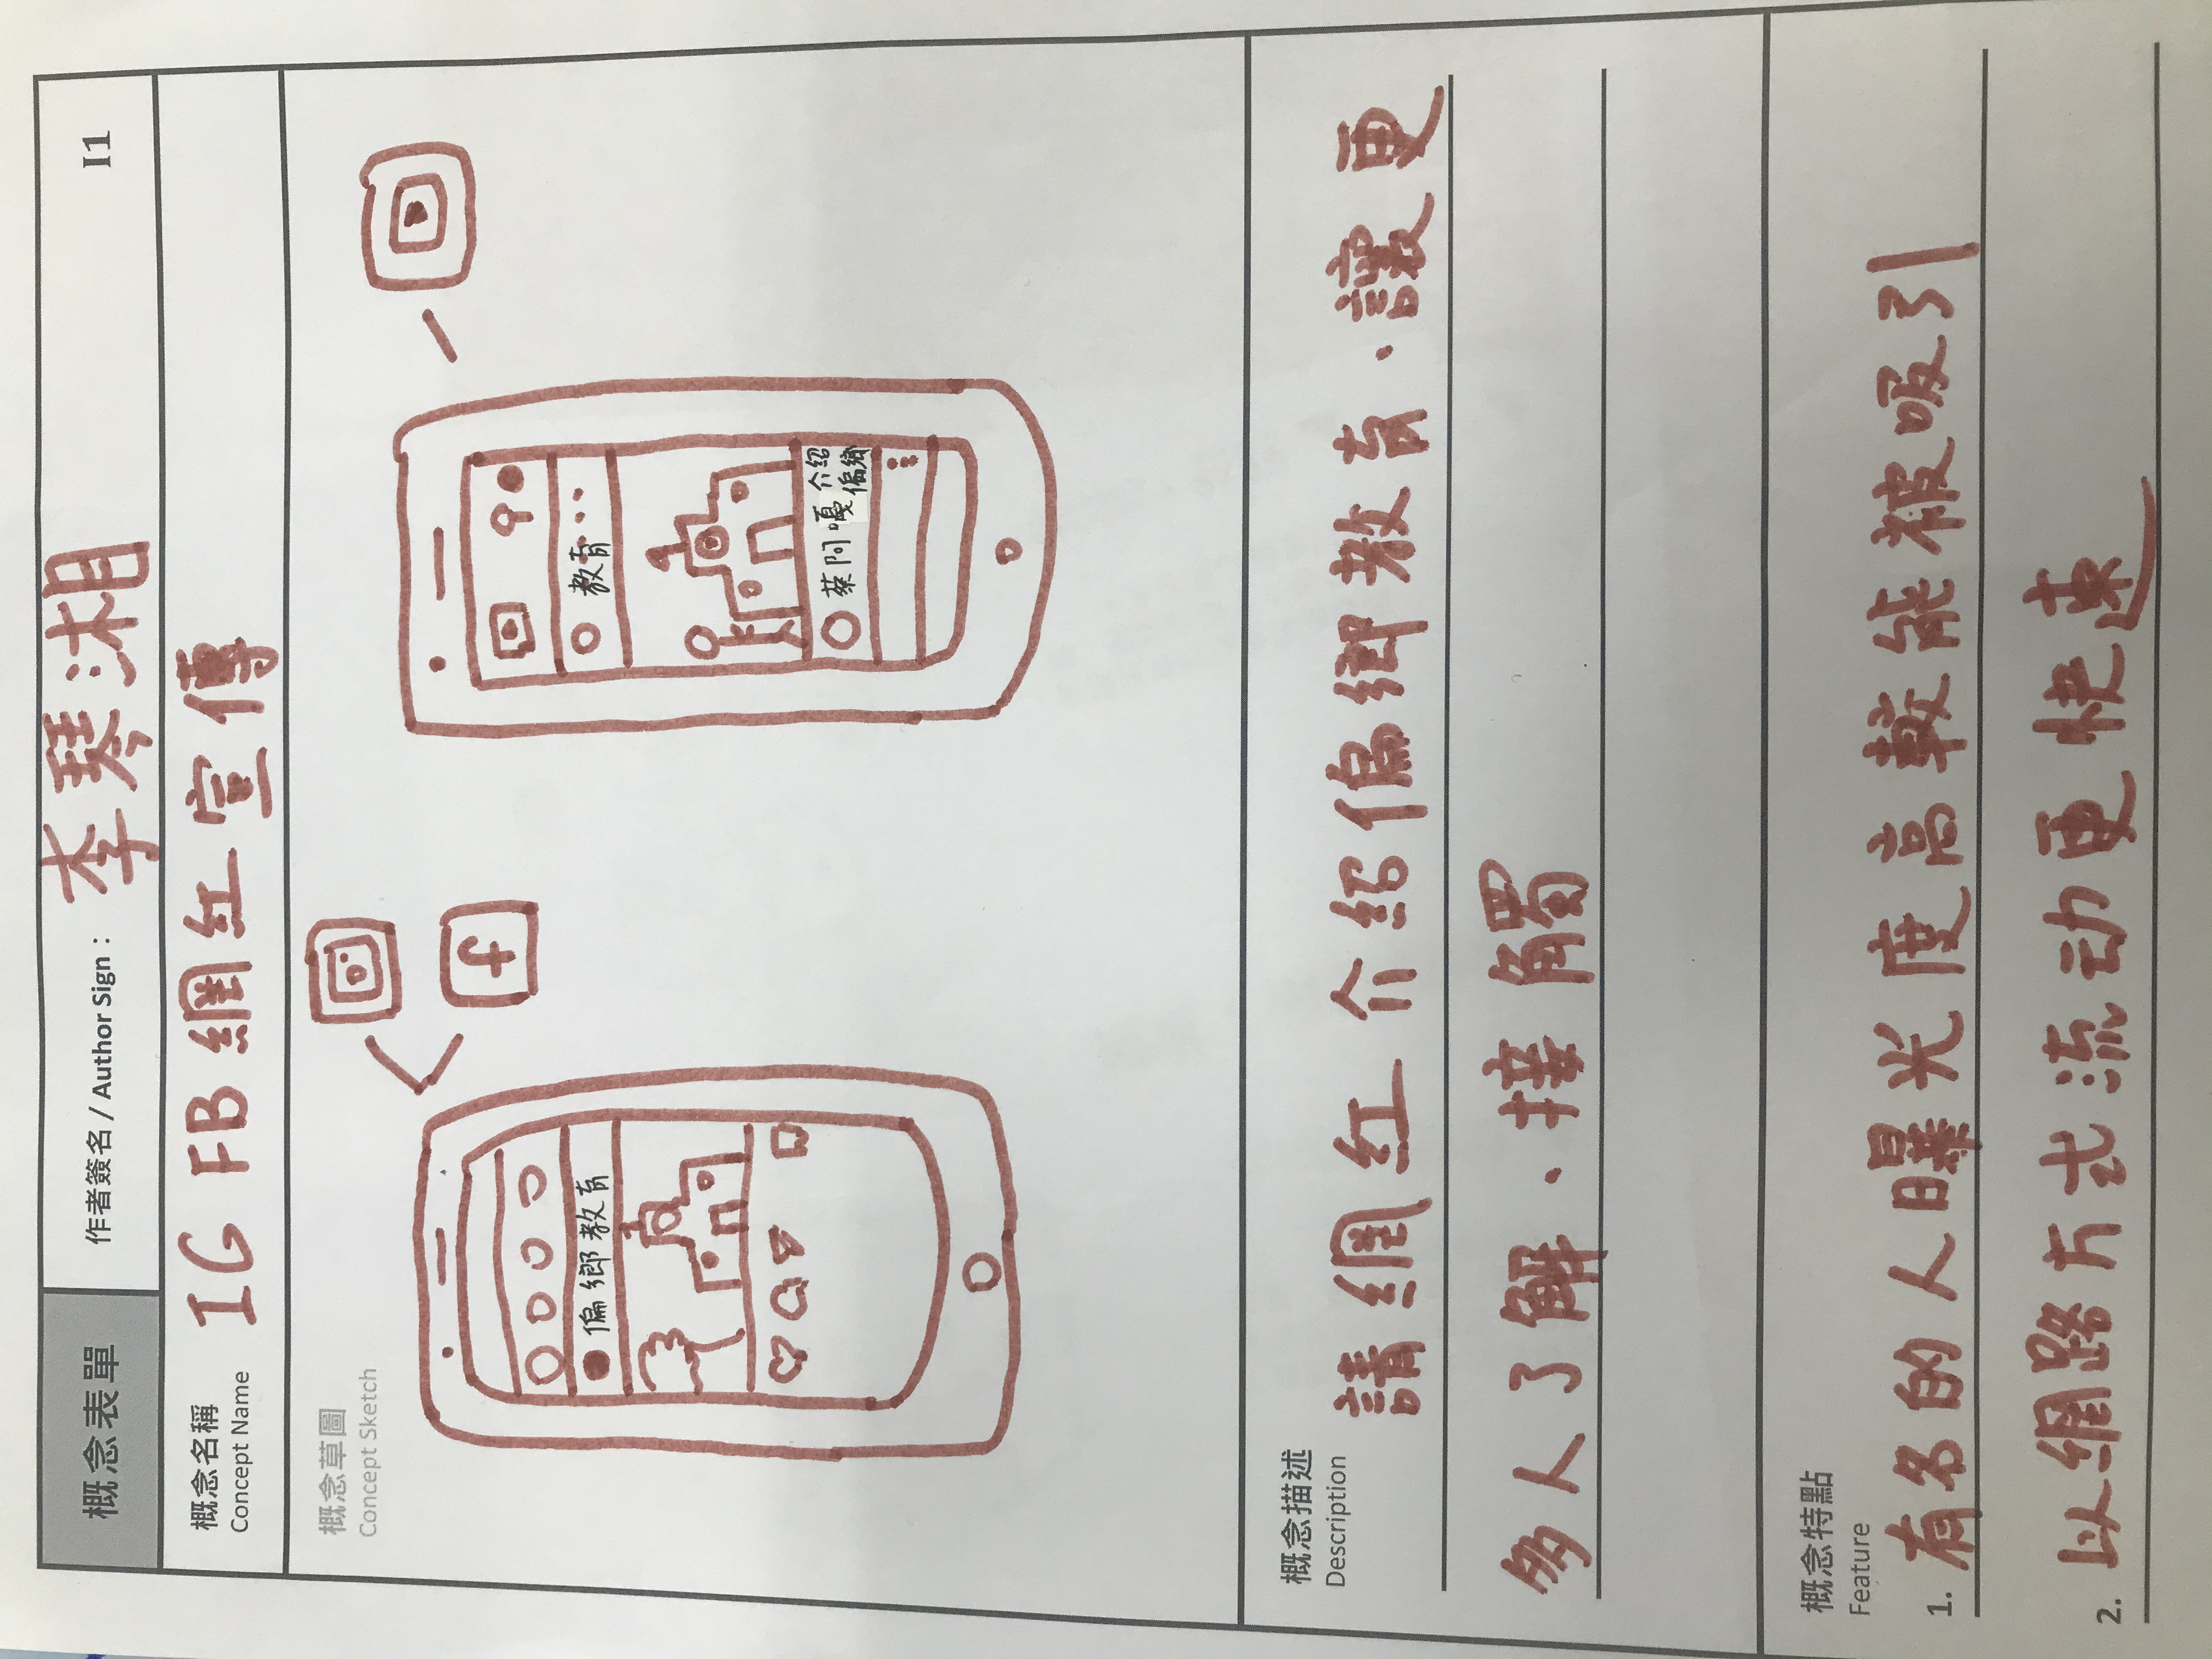 概念表單
作者簽名 / Author Sign： 李琴湘
I1
概念名稱
Concept Name
IG FB 網紅宣傳
概念草圖
Concept Sketch
f
偏鄉教育
教育...
蔡阿嘎 介紹
偏鄉
概念描述
Description
請網紅介紹偏鄉教育，讓更
多人了解、接觸
概念特點
Feature
1. 有名的人曝光度高較能被吸引
2. 以網路方式流动更快速